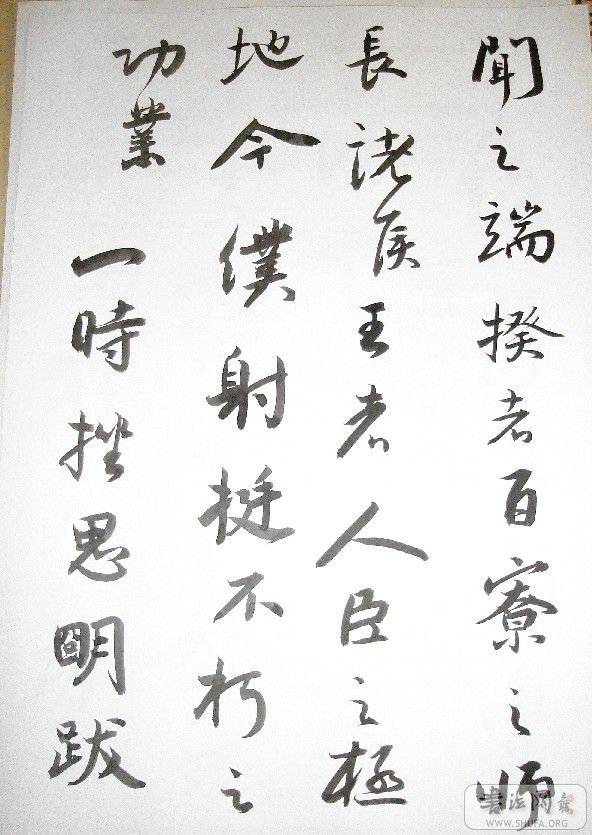 聞之端揆者百寮之師
長諸侯王者人臣之極
地今僕射挺不朽之
功業一時挫思明跋
書法网
WWW.SHUFA.ORG